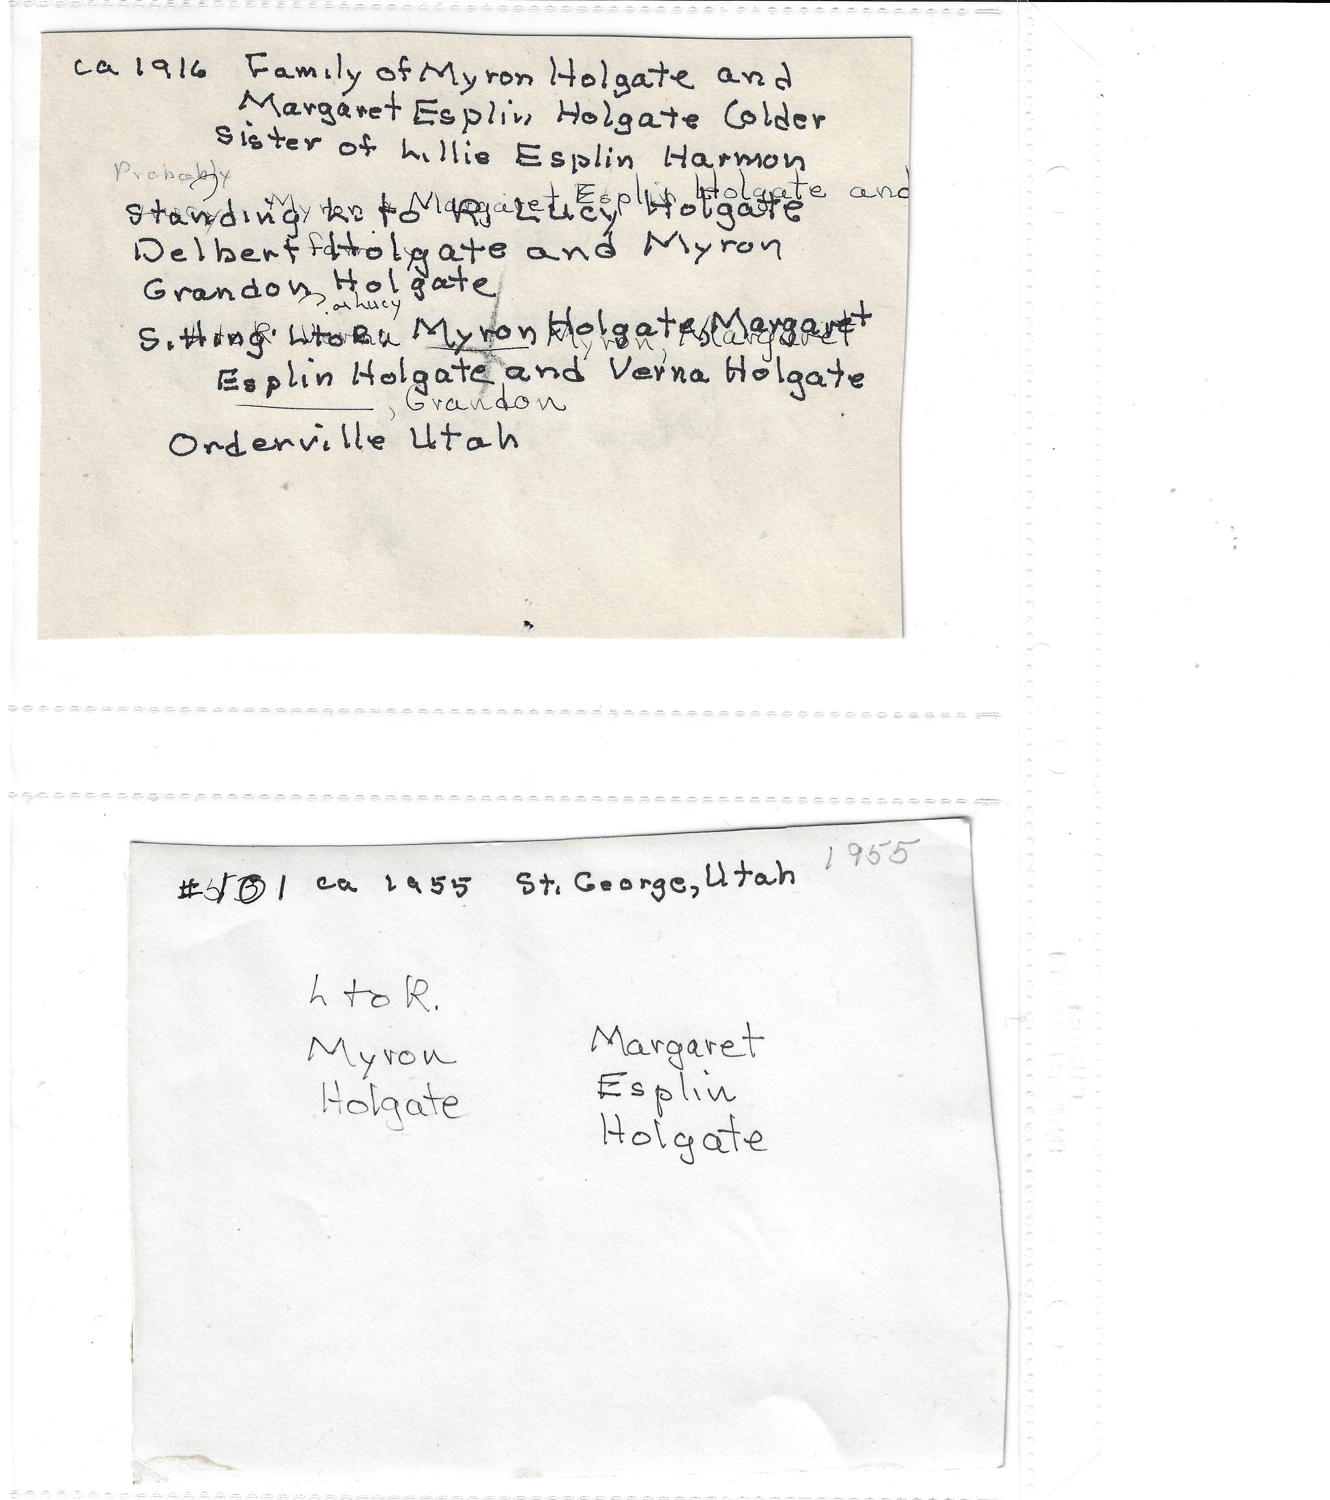 ca 1916 Family of Myron Holgate and
Margaret Esplin Holgate Colder
Sister of Lillie Esplin Harmon
Probably
Myron & Margaret Esplin Holgate and
Standing L. to R. Lucy Holgate
Delbert Holgate and Myron
family
Grandon Holgate
? or Lucy
Sitting L to R Myron Holgate, Margaret
Myron, Margaret
Esplin Holgate and Verna Holgate
, Grandon
Orderville Utah
1955
ca 1955 St. George, Utah
L to R.
Myron
Holgate
Margaret
Esplin
Holgate